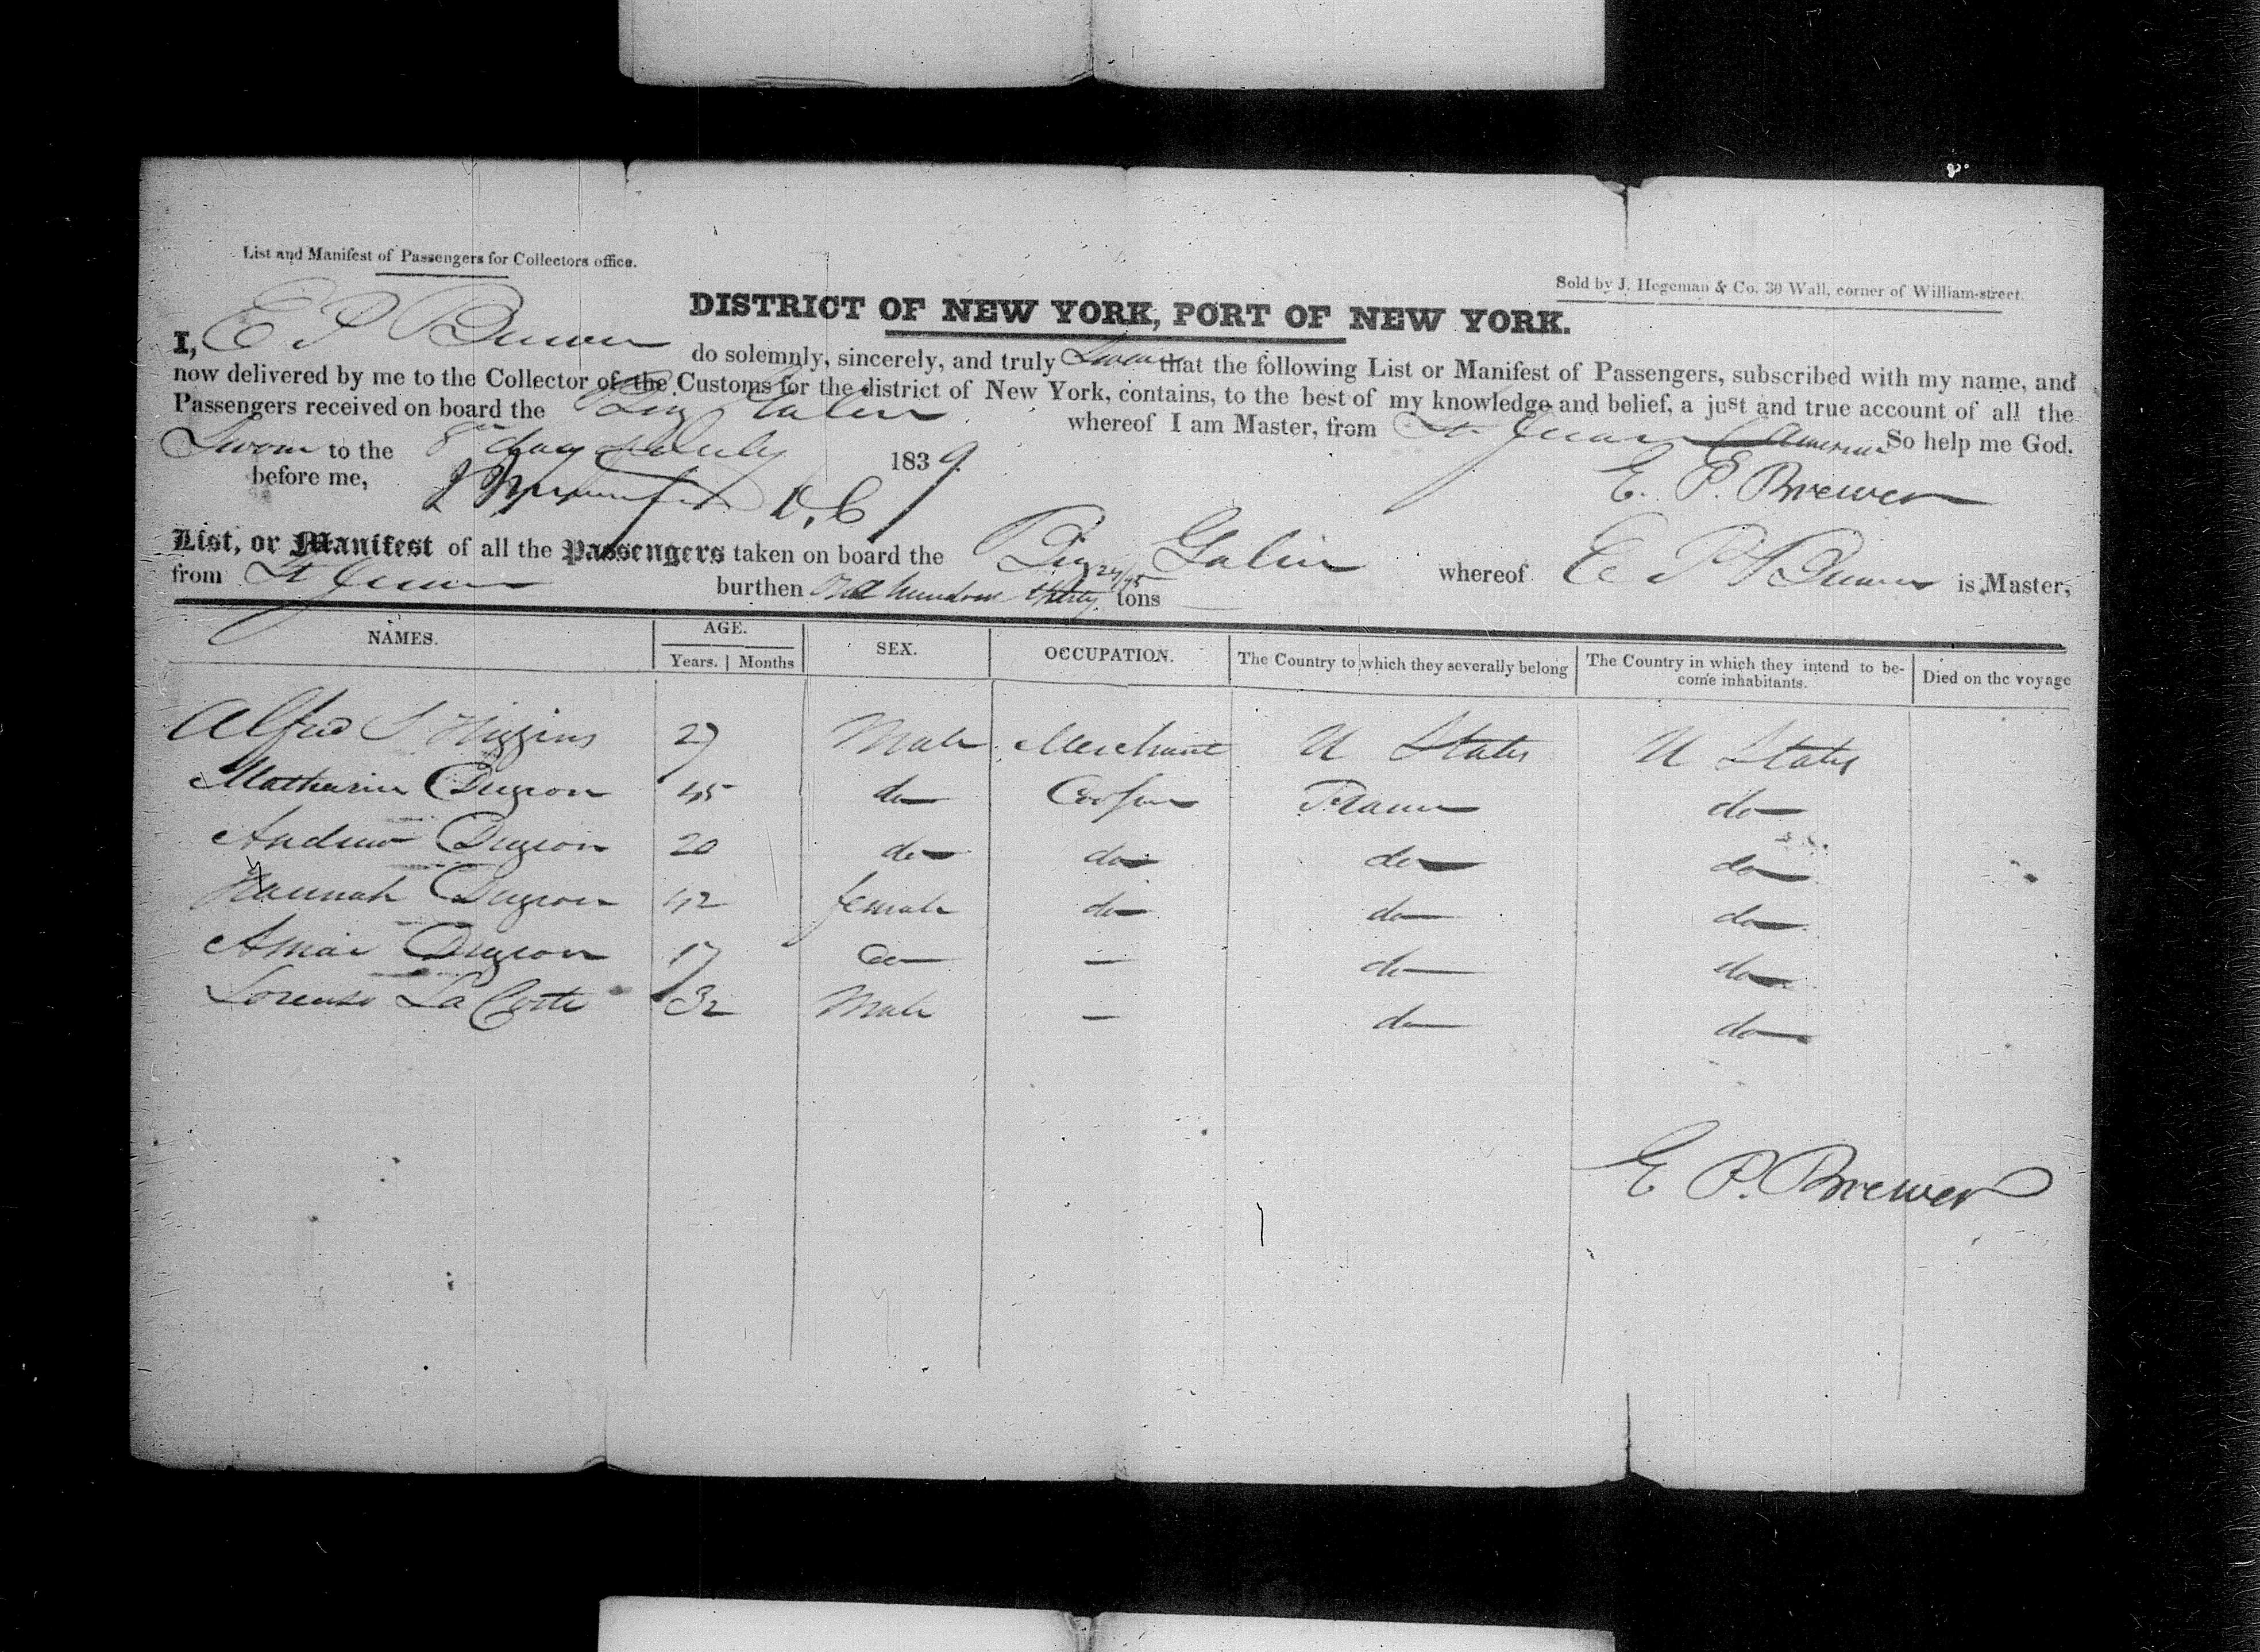 List and Manifest of Passengers for Collectors office.
Sold by J. Hegeman & Co. 30 Wall, corner of William-street.
DISTRICT OF NEW YORK, PORT OF NEW YORK.
I, E P Brewer do solemnly, sincerely, and truly Swear that the following List or Manifest of Passengers, subscribed with my name, and
now delivered by me to the Collector of the Customs for the district of New York, contains, to the best of my knowledge and belief, a just and true account of all the
Passengers received on board the Brig whereof I am Master, from St. Juan So help me God.
Sworn to the 8th day of July 1839 E. P. Brewer
before me, D. C
List, or Manifest of all the Passengers taken on board the Brig whereof E P Brewer is Master,
from St Juan burthen One hundred thirty tons
NAMES. AGE. SEX. OCCUPATION. The Country to which they severally belong The Country in which they intend to be- Died on the voyage
Years. Months come inhabitants.
Alfred S Higgins 27 Male Merchant U States U States
45 do Cooper France do
Andrew 20 do do do do
Hannah 42 female do do do
17 do — do do
Lorenzo La Coste 32 Male — do do
E P. Brewer